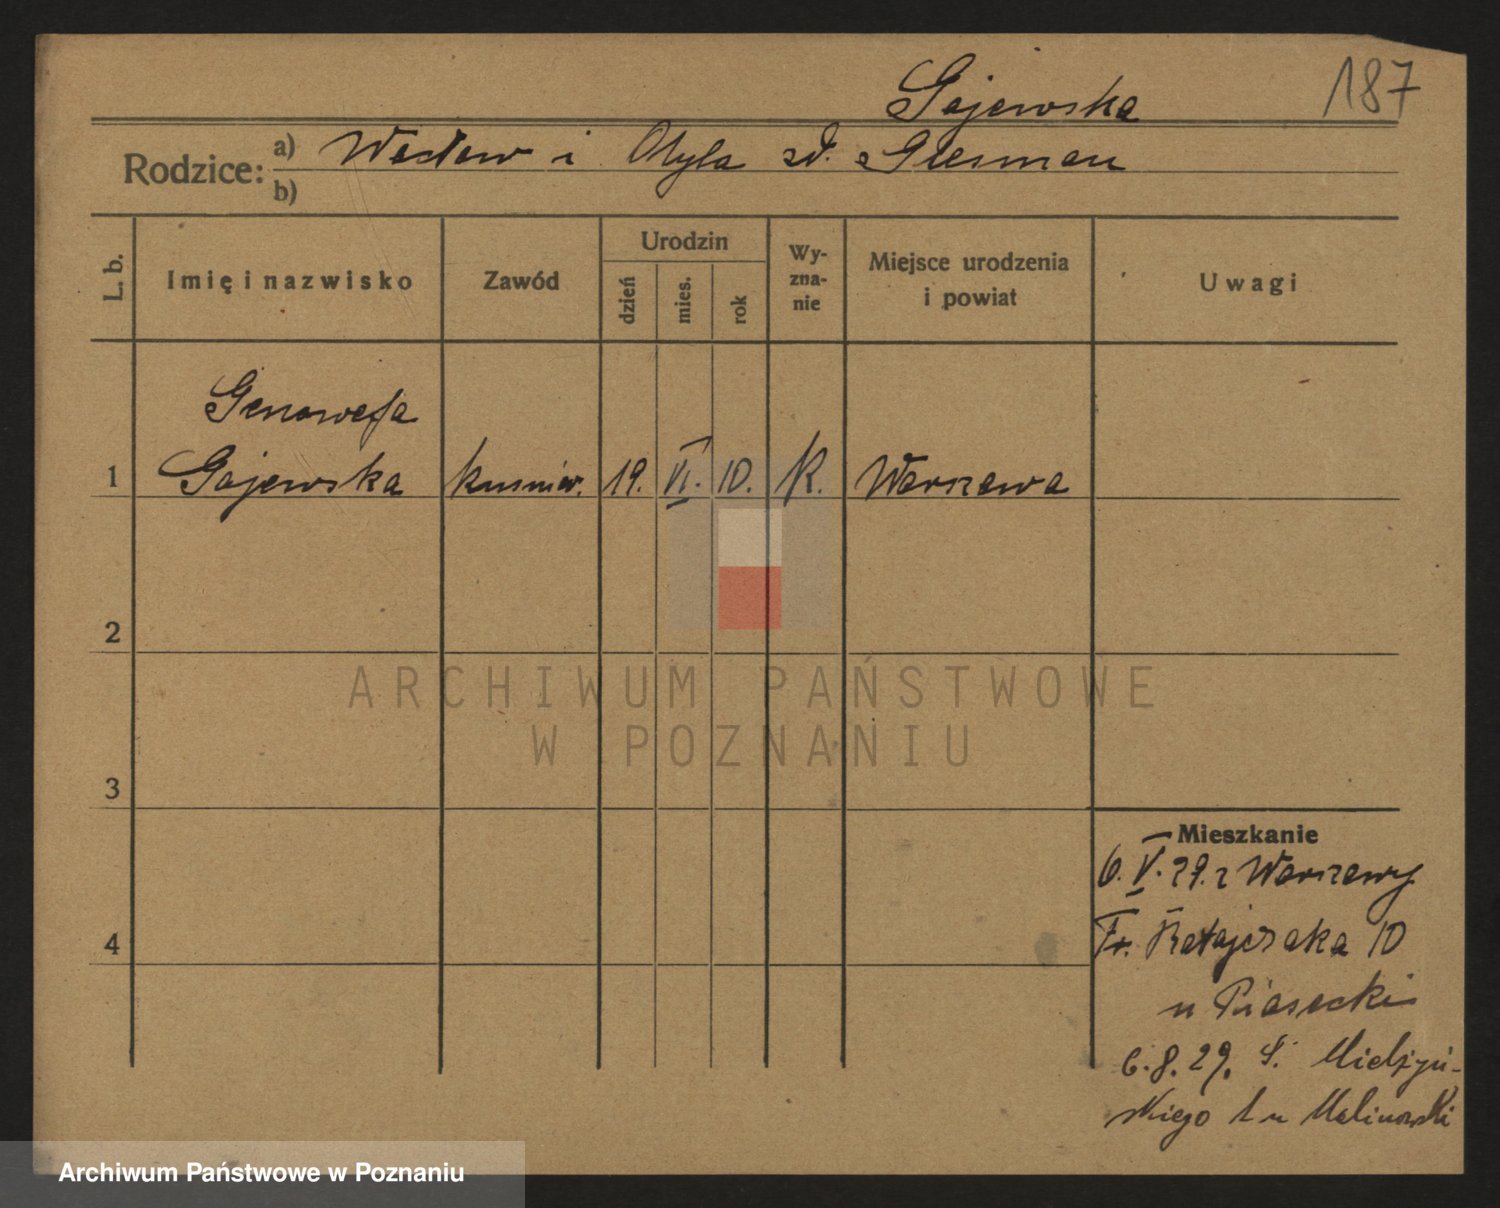 Gajewska
187
Rodzice: a) Wacław i Otyla zd. Glesman
b)
L. b.
Imię i nazwisko
Zawód
Urodzin
dzień
mies.
rok
Wy-
zna-
nie
Miejsce urodzenia
i powiat
Uwagi
Genowefa
1 Gajewska kuśnier. 19. VI. 10. K. Warszawa
2
3
4
ARCHIWUM PAŃSTWOWE
W POZNANIU
Mieszkanie
6. V. 29. z Warszawy
Fr. Ratajczaka 10
u Piasecki
6.8.29. S. Mielżyń-
skiego 1 u Malinowski
Archiwum Państwowe w Poznaniu